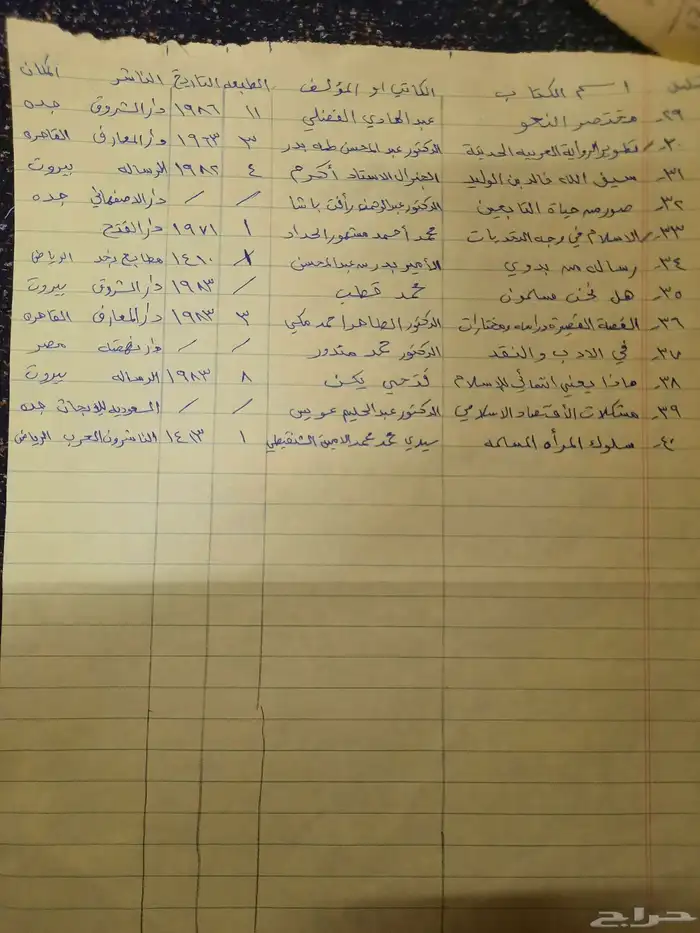 اسم الكتاب الكاتب او المؤلف الطبعه التاريخ الناشر المكان
٢٩- مختصر النحو عبدالهادي الفضلي ١١ ١٩٨٦ دار الشروق جده
٣٠- تطوير الرواية العربيه الحديثة الدكتور عبدالمحسن طه بدر ٣ ١٩٦٣ دار المعارف القاهره
٣١- سيف الله خالد بن الوليد الجنرال الاستاذ أكرم ٤ ١٩٨٢ الرساله بيروت
٣٢- صور من حياة التابعين الدكتور عبدالرحمن رأفت باشا / / دار الاصفهاني جده
٣٣- الاسلام في وجه التحديات محمد أحمد مشهور الحداد ١ ١٩٧١ دار الفتح
٣٤- رساله من بدوي الأمير بدر بن عبدالمحسن ١٤١٠ مطابع الرياض
٣٥- هل نحن مسلمون محمد قطب / ١٩٨٣ دار الشروق بيروت
٣٦- القصة القصيرة دراسه ومختارات الدكتور الطاهر احمد مكي ٣ ١٩٨٣ دار المعارف القاهره
٣٧- في الادب والنقد الدكتور محمد مندور / / دار نهضة مصر
٣٨- ماذا يعني انتمائي للإسلام فتحي يكن ٨ ١٩٨٣ الرساله بيروت
٣٩- مشكلات الأقتصاد الاسلامي الدكتور عبدالحليم عويس / / السعوديه للابحاث جده
٤٠- سلوك المرأه المسلمه سيدي محمد محمد الامين الشنقيطي ١ ١٤١٣ الناشرون العرب الرياض
حراج